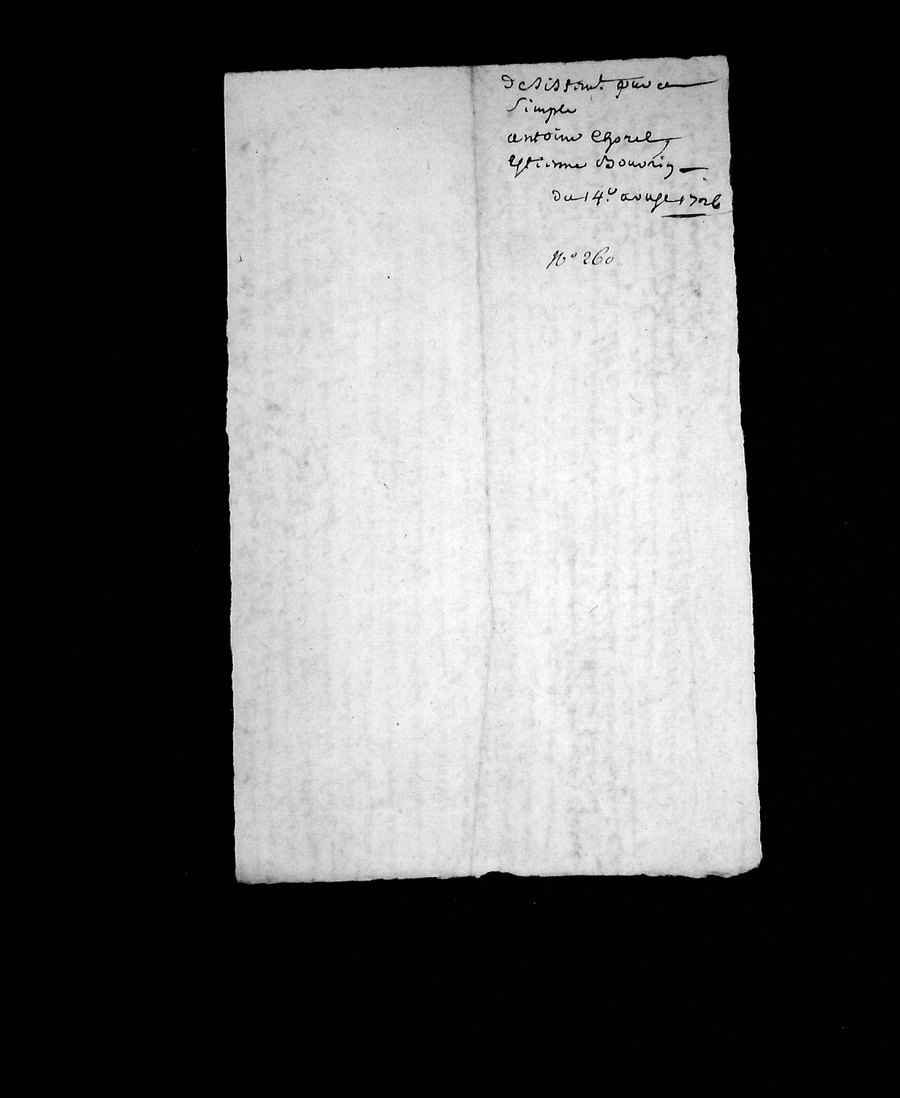 Desistemt par ce
Simple
antoine Chorel
Estienne Bouvrin
du 14.e 1726
No 260